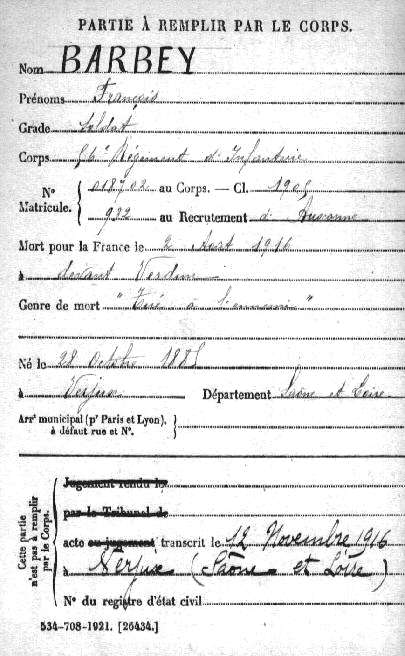 PARTIE À REMPLIR PAR LE CORPS.
Nom BARBEY
Prénoms François
Grade Soldat
Corps 56e Régiment d'Infanterie
N° Matricule. 018702 au Corps. — Cl. 1905
932 au Recrutement d'Auxonne
Mort pour la France le 2 Août 1916
à devant Verdun
Genre de mort "Tué à l'ennemi"
Né le 28 Octobre 1885
à Verjux Département Saône et Loire
Arrt municipal (pr Paris et Lyon), à défaut rue et N°.
Cette partie n'est pas à remplir par le Corps.
Jugement rendu le
par le Tribunal de
acte ou jugement transcrit le 12 Novembre 1916
à Verjux (Saône et Loire)
N° du registre d'état civil
534-708-1921. [26434.]